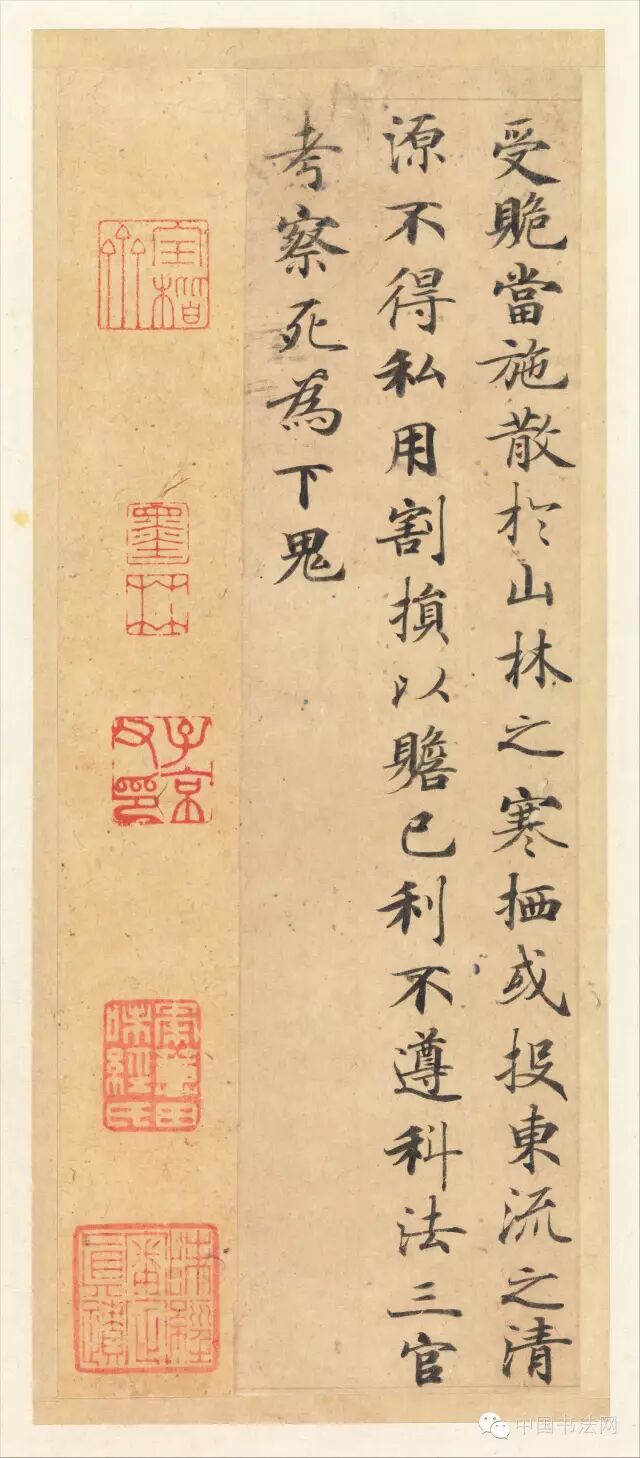 受賍當施散於山林之寒栖或投東流之清
源不得私用割損以贍己利不遵科法三官
考察死為下鬼
子京父印
中国书法网